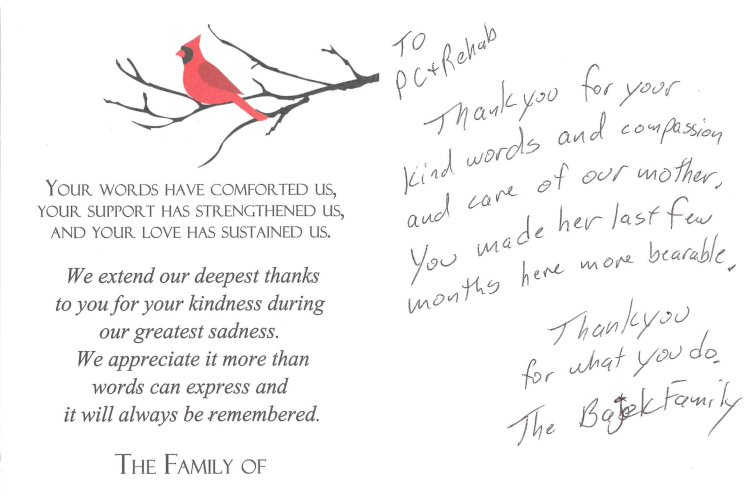 YOUR WORDS HAVE COMFORTED US,
YOUR SUPPORT HAS STRENGTHENED US,
AND YOUR LOVE HAS SUSTAINED US.
We extend our deepest thanks
to you for your kindness during
our greatest sadness.
We appreciate it more than
words can express and
it will always be remembered.
THE FAMILY OF
TO
PC+Rehab
Thank you for your
kind words and compassion
and care of our mother.
You made her last few
months here more bearable.
Thank you
for what you do.
The Family